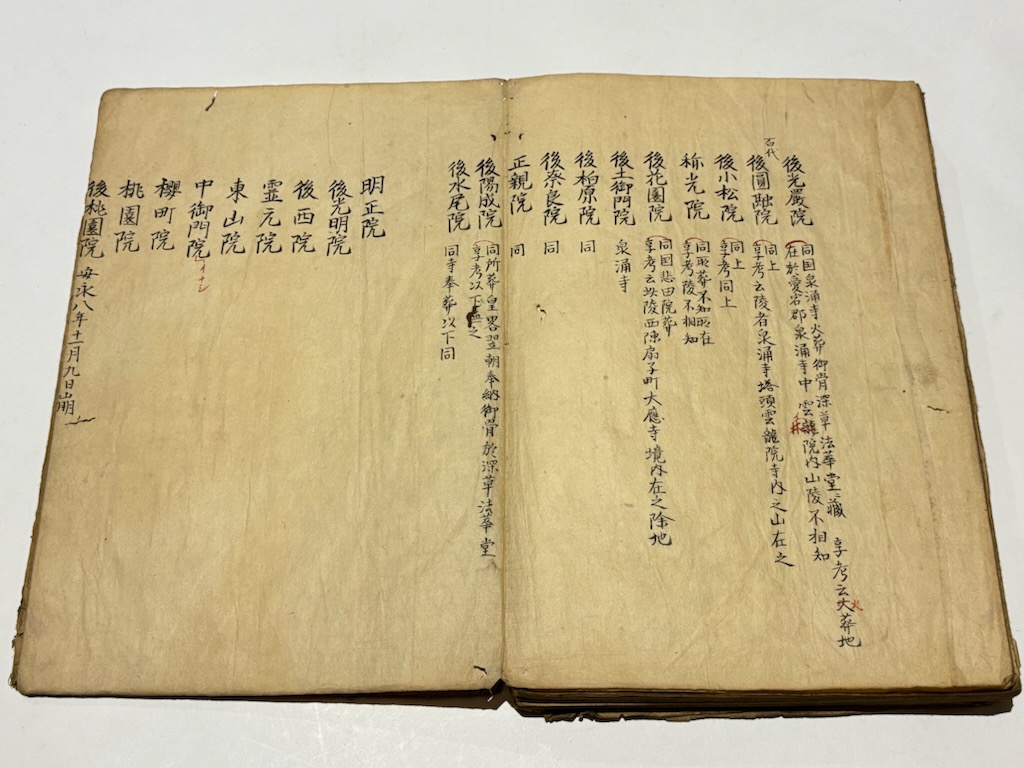 後光嚴院
同国泉涌寺火葬御骨深草法華堂ニ藏　享考云火葬地
在於愛宕郡泉涌寺中雲龍院内山陵不相知
百代
後圓融院
同上
享考云陵者泉涌寺塔頭雲龍院寺内之山在之
後小松院
同上
享考同上
称光院
同取葬不知取在
享考陵不相知
後花園院
同国悲田院葬
享考云此陵西陣扇子町大應寺境内在之除地
後土御門院　泉涌寺
後柏原院　同
後奈良院　同
正親院　同
後陽成院
同所葬皇畧翌朝奉納御骨於深草法華堂
享考以下無之
後水尾院　同寺奉葬以下同
明正院
後光明院
後西院
霊元院
東山院
中御門院
櫻町院
桃園院
後桃園院　安永八年十一月九日山明